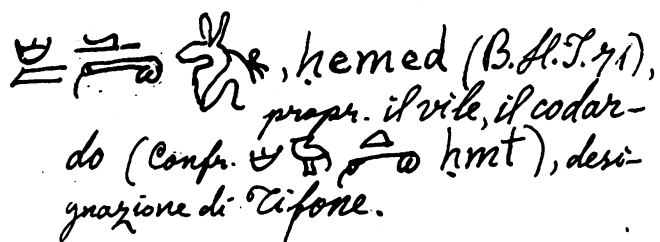 , ḥemed (B.H.T. 71),
propr. il vile, il codar-
do (Confr. ḥmt), desi-
gnazione di Tifone.